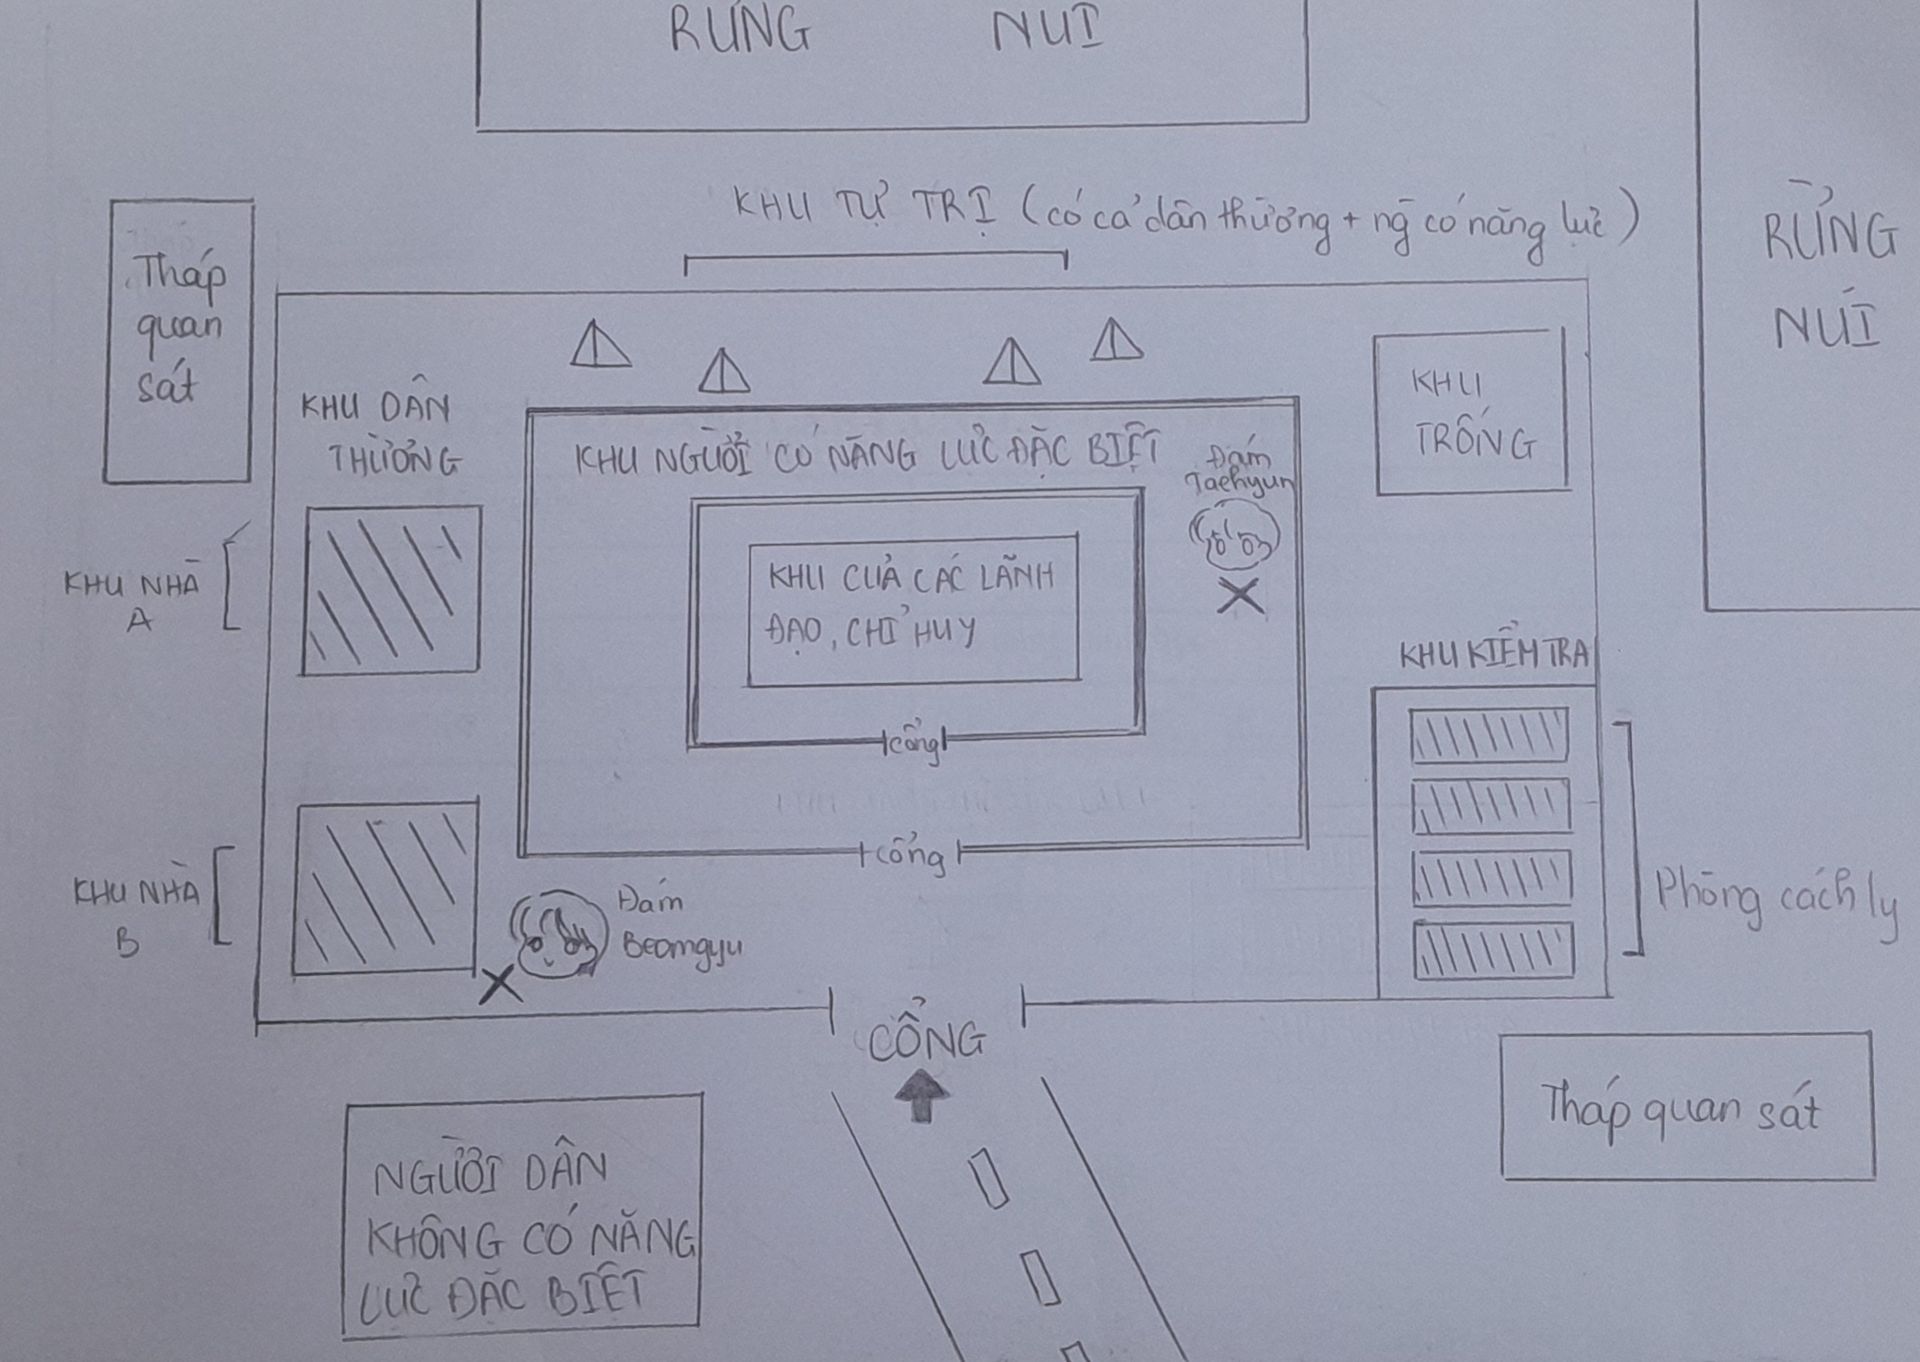 RỪNG NÚI
KHU TỰ TRỊ (có cả dân thường + ng̃ có năng lực)
Tháp
quan
sát
RỪNG
NÚI
KHU DÂN
THƯỜNG
KHU NGƯỜI CÓ NĂNG LỰC ĐẶC BIỆT
Đám
Taehyun
KHU
TRỐNG
KHU NHÀ
A
KHU CỦA CÁC LÃNH
ĐẠO, CHỈ HUY
cổng
KHU KIỂM TRA
cổng
KHU NHÀ
B
Đám
Beomgyu
Phòng cách ly
CỔNG
Tháp quan sát
NGƯỜI DÂN
KHÔNG CÓ NĂNG
LỰC ĐẶC BIỆT